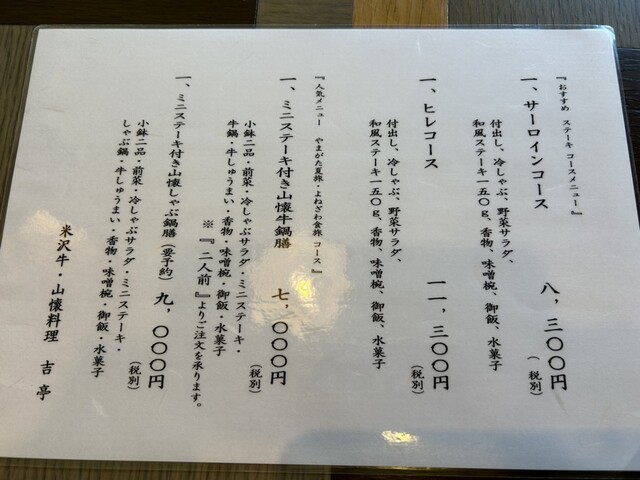 『おすすめ ステーキ コースメニュー』
一、サーロインコース 八，三〇〇円
（税別）
付出し、冷しゃぶ、野菜サラダ、
和風ステーキ一五〇g、香物、味噌椀、御飯、水菓子
一、ヒレコース 一一，三〇〇円
（税別）
付出し、冷しゃぶ、野菜サラダ、
和風ステーキ一五〇g、香物、味噌椀、御飯、水菓子
『人気メニュー やまがた夏旅・よねざわ食旅 コース』
一、ミニステーキ付き山懐牛鍋膳 七，〇〇〇円
（税別）
小鉢二品・前菜・冷しゃぶサラダ・ミニステーキ・
牛鍋・牛しゅうまい・香物・味噌椀・御飯・水菓子
※『二人前』よりご注文を承ります。
一、ミニステーキ付き山懐しゃぶ鍋膳（要予約） 九，〇〇〇円
（税別）
小鉢二品・前菜・冷しゃぶサラダ・ミニステーキ・
しゃぶ鍋・牛しゅうまい・香物・味噌椀・御飯・水菓子
米沢牛・山懐料理 吉亭